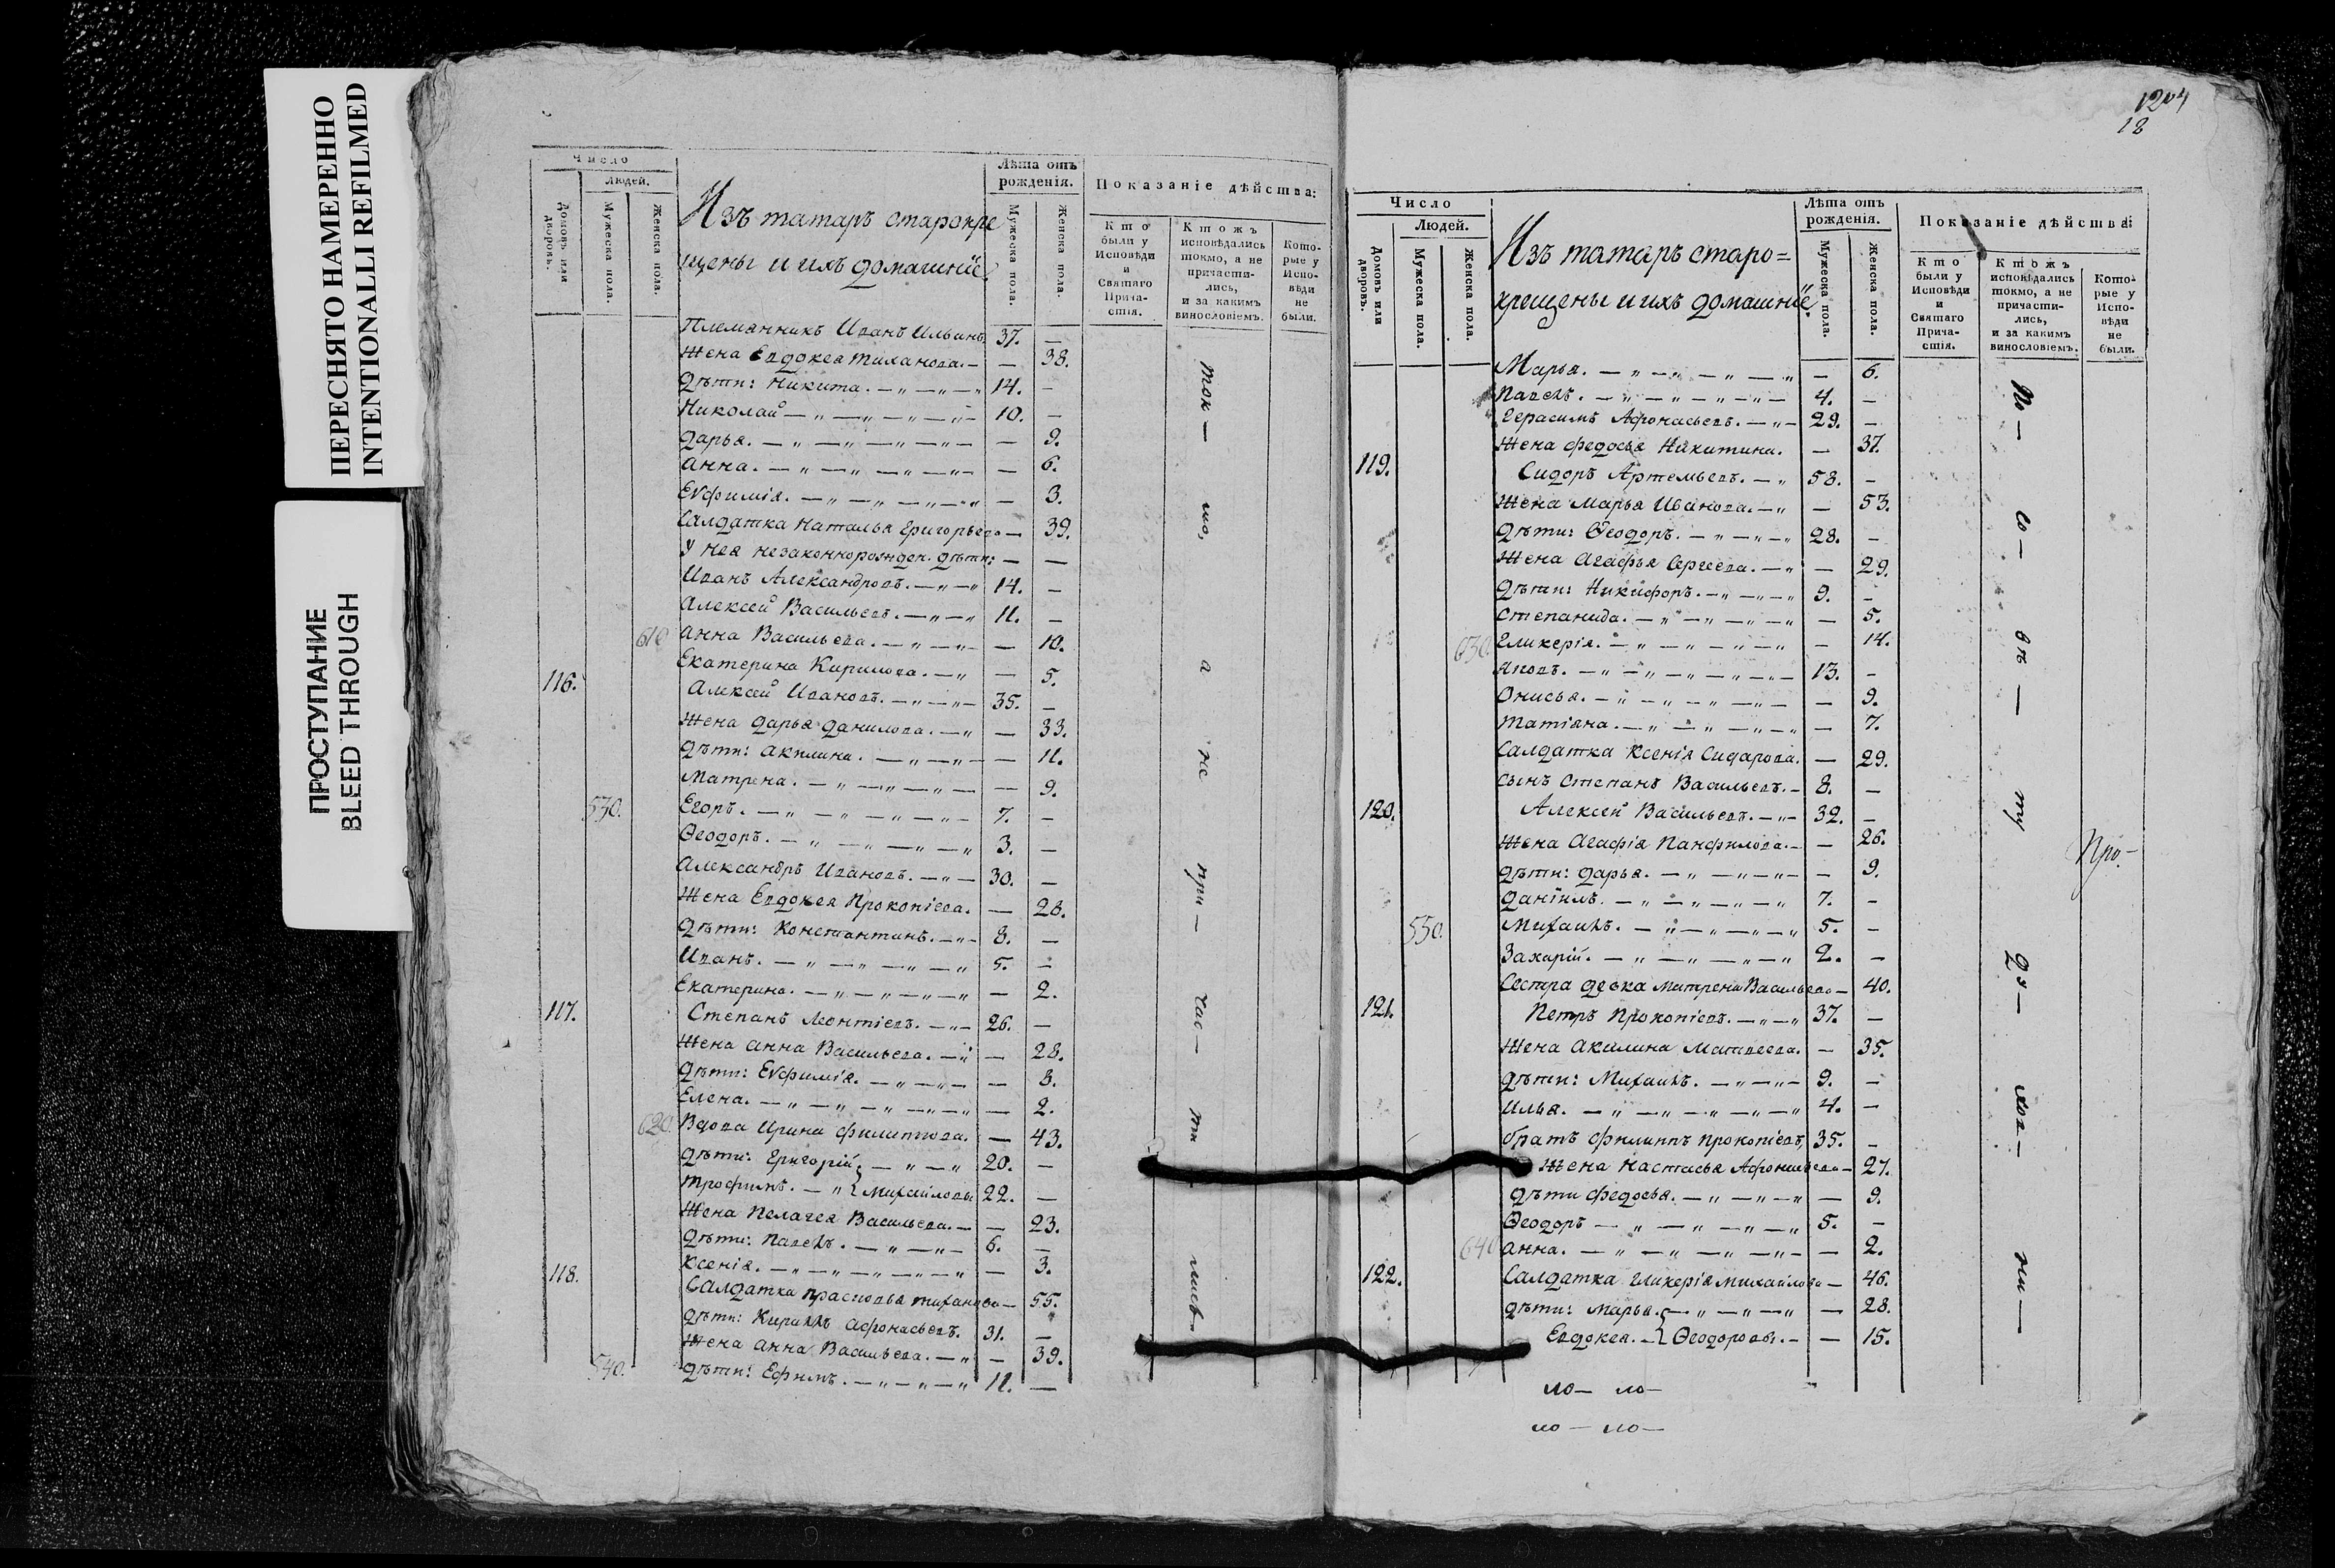 ПЕРЕСНЯТО НАМЕРЕННО
INTENTIONALLI REFILMED
ПРОСТУПАНИЕ
BLEED THROUGH
Число
Людей.
Домовъ или дворовъ.
Мужеска пола.
Женска пола.
Изъ татаръ старокре
щены и ихъ домашніе
Лѣта отъ рожденія.
Мужеска пола.
Женска пола.
Показаніе дѣйства:
Кто были у Исповѣди и Святаго Прича-стія.
Ктожъ исповѣдались токмо, а не причасти-лись, и за какимъ винословіемъ.
Кото-рые у Испо-вѣди не были.
Племянникъ Иванъ Ильинъ 37. —
Жена Евдокея — — 38.
Дѣти: Никита. — „ — „ — „ 14. —
Николай — „ — „ — „ — 10. —
Дарья. — „ — „ — „ — — 9.
Анна. — „ — „ — „ — — 6.
Евфимія. — „ — „ — „ — „ — 3.
Салдатка Наталья Григорьева — 39.
У нея незаконнорожден. дѣти: — —
Иванъ Александровъ. — „ — „ 14. —
Алексей Васильевъ. — „ — „ 11. —
610 Анна Васильева. — „ — „ — — 10.
Екатерина Кирилова. — „ — 5.
116. Алексей Ивановъ. — „ — „ — 35. —
Жена Дарья Данилова. — „ — 33.
Дѣти: Акилина. — „ — „ — — 11.
Матрена. — „ — „ — „ — — 9.
530. Егоръ. — „ — „ — „ — „ — 7. —
Ѳеодоръ. — „ — „ — „ — „ 3. —
Александръ Ивановъ. — „ — 30. —
Жена Евдокея Прокопіева. — 28.
Дѣти: Константинъ. — „ — 8. —
Иванъ. — „ — „ — „ — „ 5. —
Екатерина. — „ — „ — „ — „ — 2.
117. Степанъ Леонтіевъ. — „ — 26. —
Жена Анна Васильева. — „ — 28.
Дѣти: Евфимія. — „ — „ — — 8.
Елена. — „ — „ — „ — „ — „ — 2.
620. Вдова Ирина Филиппова. — 43.
Дѣти: Григорій — „ — „ 20. —
Трофимъ. — „ Михайловы 22. —
Жена Пелагея Васильева. — — 23.
Дѣти: Павелъ. — „ — „ — 6. —
Ксенія. — „ — „ — „ — „ — „ — 3.
118. Салдатка Прасковья — 55.
Дѣти: Кирилъ Афонасьевъ. 31. —
Жена Анна Васильева. — „ — 39.
540. Дѣти: Ефимъ. — „ — „ — „ 11. —
ток —
мо,
а
не
при —
час —
ти
лись
1204
18
Число
Людей.
Домовъ или дворовъ.
Мужеска пола.
Женска пола.
Изъ татаръ старо=
крещены и ихъ домашніе.
Лѣта отъ рожденія.
Мужеска пола.
Женска пола.
Показаніе дѣйства:
Кто были у Исповѣди и Святаго Прича-стія.
Ктожъ исповѣдались токмо, а не причасти-лись, и за какимъ винословіемъ.
Кото-рые у Испо-вѣди не были.
Марья. — „ — „ — „ — „ — 6.
Павелъ. — „ — „ — „ — „ — 4. —
Герасимъ Афонасьевъ. — „ — 29. —
Жена Федосья Никитина. — 37.
119. Сидоръ Артемьевъ. — „ 58. —
Жена Марья Иванова. — „ — 53.
Дѣти: Ѳеодоръ. — „ — „ — „ 28. —
Жена Агафья Сергеева. — „ — 29.
Дѣти: Никифоръ. — „ — „ — „ 9. —
Степанида. — „ — „ — „ — „ — 5.
630. Гликерія. — „ — „ — „ — „ — 14.
Яковъ. — „ — „ — „ — „ — 13. —
Онисья. — „ — „ — „ — „ — — 9.
Татіяна. — „ — „ — „ — „ — 7.
Салдатка Ксенія Сидарова. — 29.
Сынъ Степанъ Васильевъ. — 8. —
120. Алексей Васильевъ. — „ — 32. —
Жена Агафія Панфилова. — — 26.
Дѣти: Дарья. — „ — „ — „ — — 9.
Даніилъ. — „ — „ — „ — „ 7. —
550. Михаилъ. — „ — „ — „ — „ 5. —
Захарій. — „ — „ — „ — „ 2. —
Сестра девка Матрена Васильева — 40.
121. Петръ Прокопіевъ. — „ — „ 37. —
Жена Акилина Матвеева. — 35.
Дѣти: Михаилъ. — „ — „ — 9. —
Илья. — „ — „ — „ — „ — „ 4. —
Братъ Филиппъ Прокопіевъ, 35. —
Жена Настасья — 27.
Дѣти Федосья. — „ — „ — „ — 9.
Ѳеодоръ — „ — „ — „ — „ 5. —
640 Анна. — „ — „ — „ — „ — — 2.
122. Салдатка Гликерія Михайлова — 46.
Дѣти: Марья. — „ — „ — „ — 28.
Евдокея. — Ѳеодоровы. — — 15.
По —
со —
вѣ —
ту
ду —
хов —
ни —
Про-
ло — ло —
ло — ло —